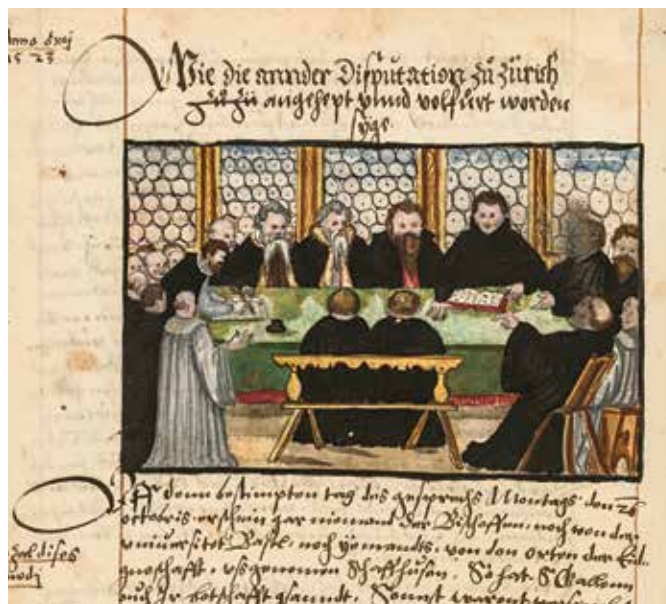 Anno dom̄
1523
Wie die annder Disputation zu Zürich
zu angehept vnnd volfürt worden
syge.
Vff denn bestimpten tag des gesprechs Montags den 26
octobris erschein gar niemant der Bischoffen, noch von der
vniuersitet Basel, noch yemandts, von den orten der Eid¬
gnoschafft, vsgenomen Schaffhusen. So hat S. Gallenn
ouch Jr botschafft gsanndt. Sonnst warent
Zal dises